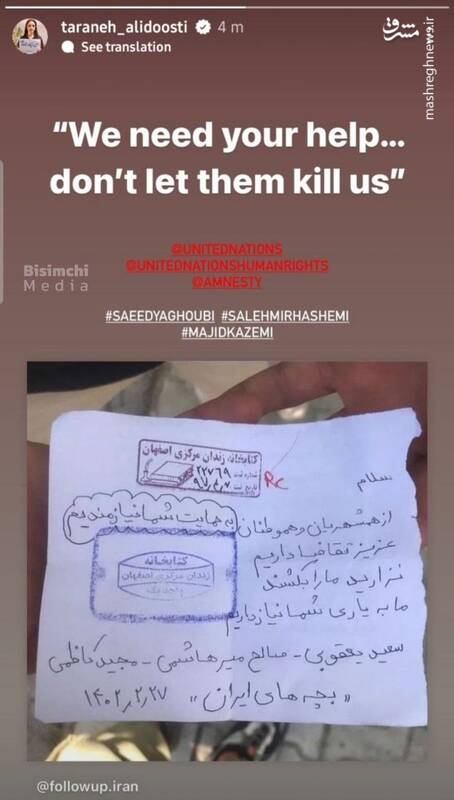 taraneh_alidoosti 4 m
See translation
مشرق
mashreghnews.ir
“We need your help...
don’t let them kill us”
@UNITEDNATIONS
@UNITEDNATIONSHUMANRIGHTS
@AMNESTY
Bisimchi
Media
#SAEEDYAGHOUBI #SALEHMIRHASHEMI
#MAJIDKAZEMI
کتابخانه زندان مرکزی اصفهان
شماره ثبت ۲۲۷۶۹
تاریخ ثبت
سلام
از همشهریان و هموطنان
به حمایت شما نیازمندیم
عزیز تقاضا داریم
نزارید مارا بکشند
ما به یاری شما نیاز داریم
کتابخانه
زندان مرکزی اصفهان
سعید یعقوبی - صالح میرهاشمی - مجید کاظمی
"بچه های ایران" ۱۴۰۲٫۲٫۲۷
@followup.iran